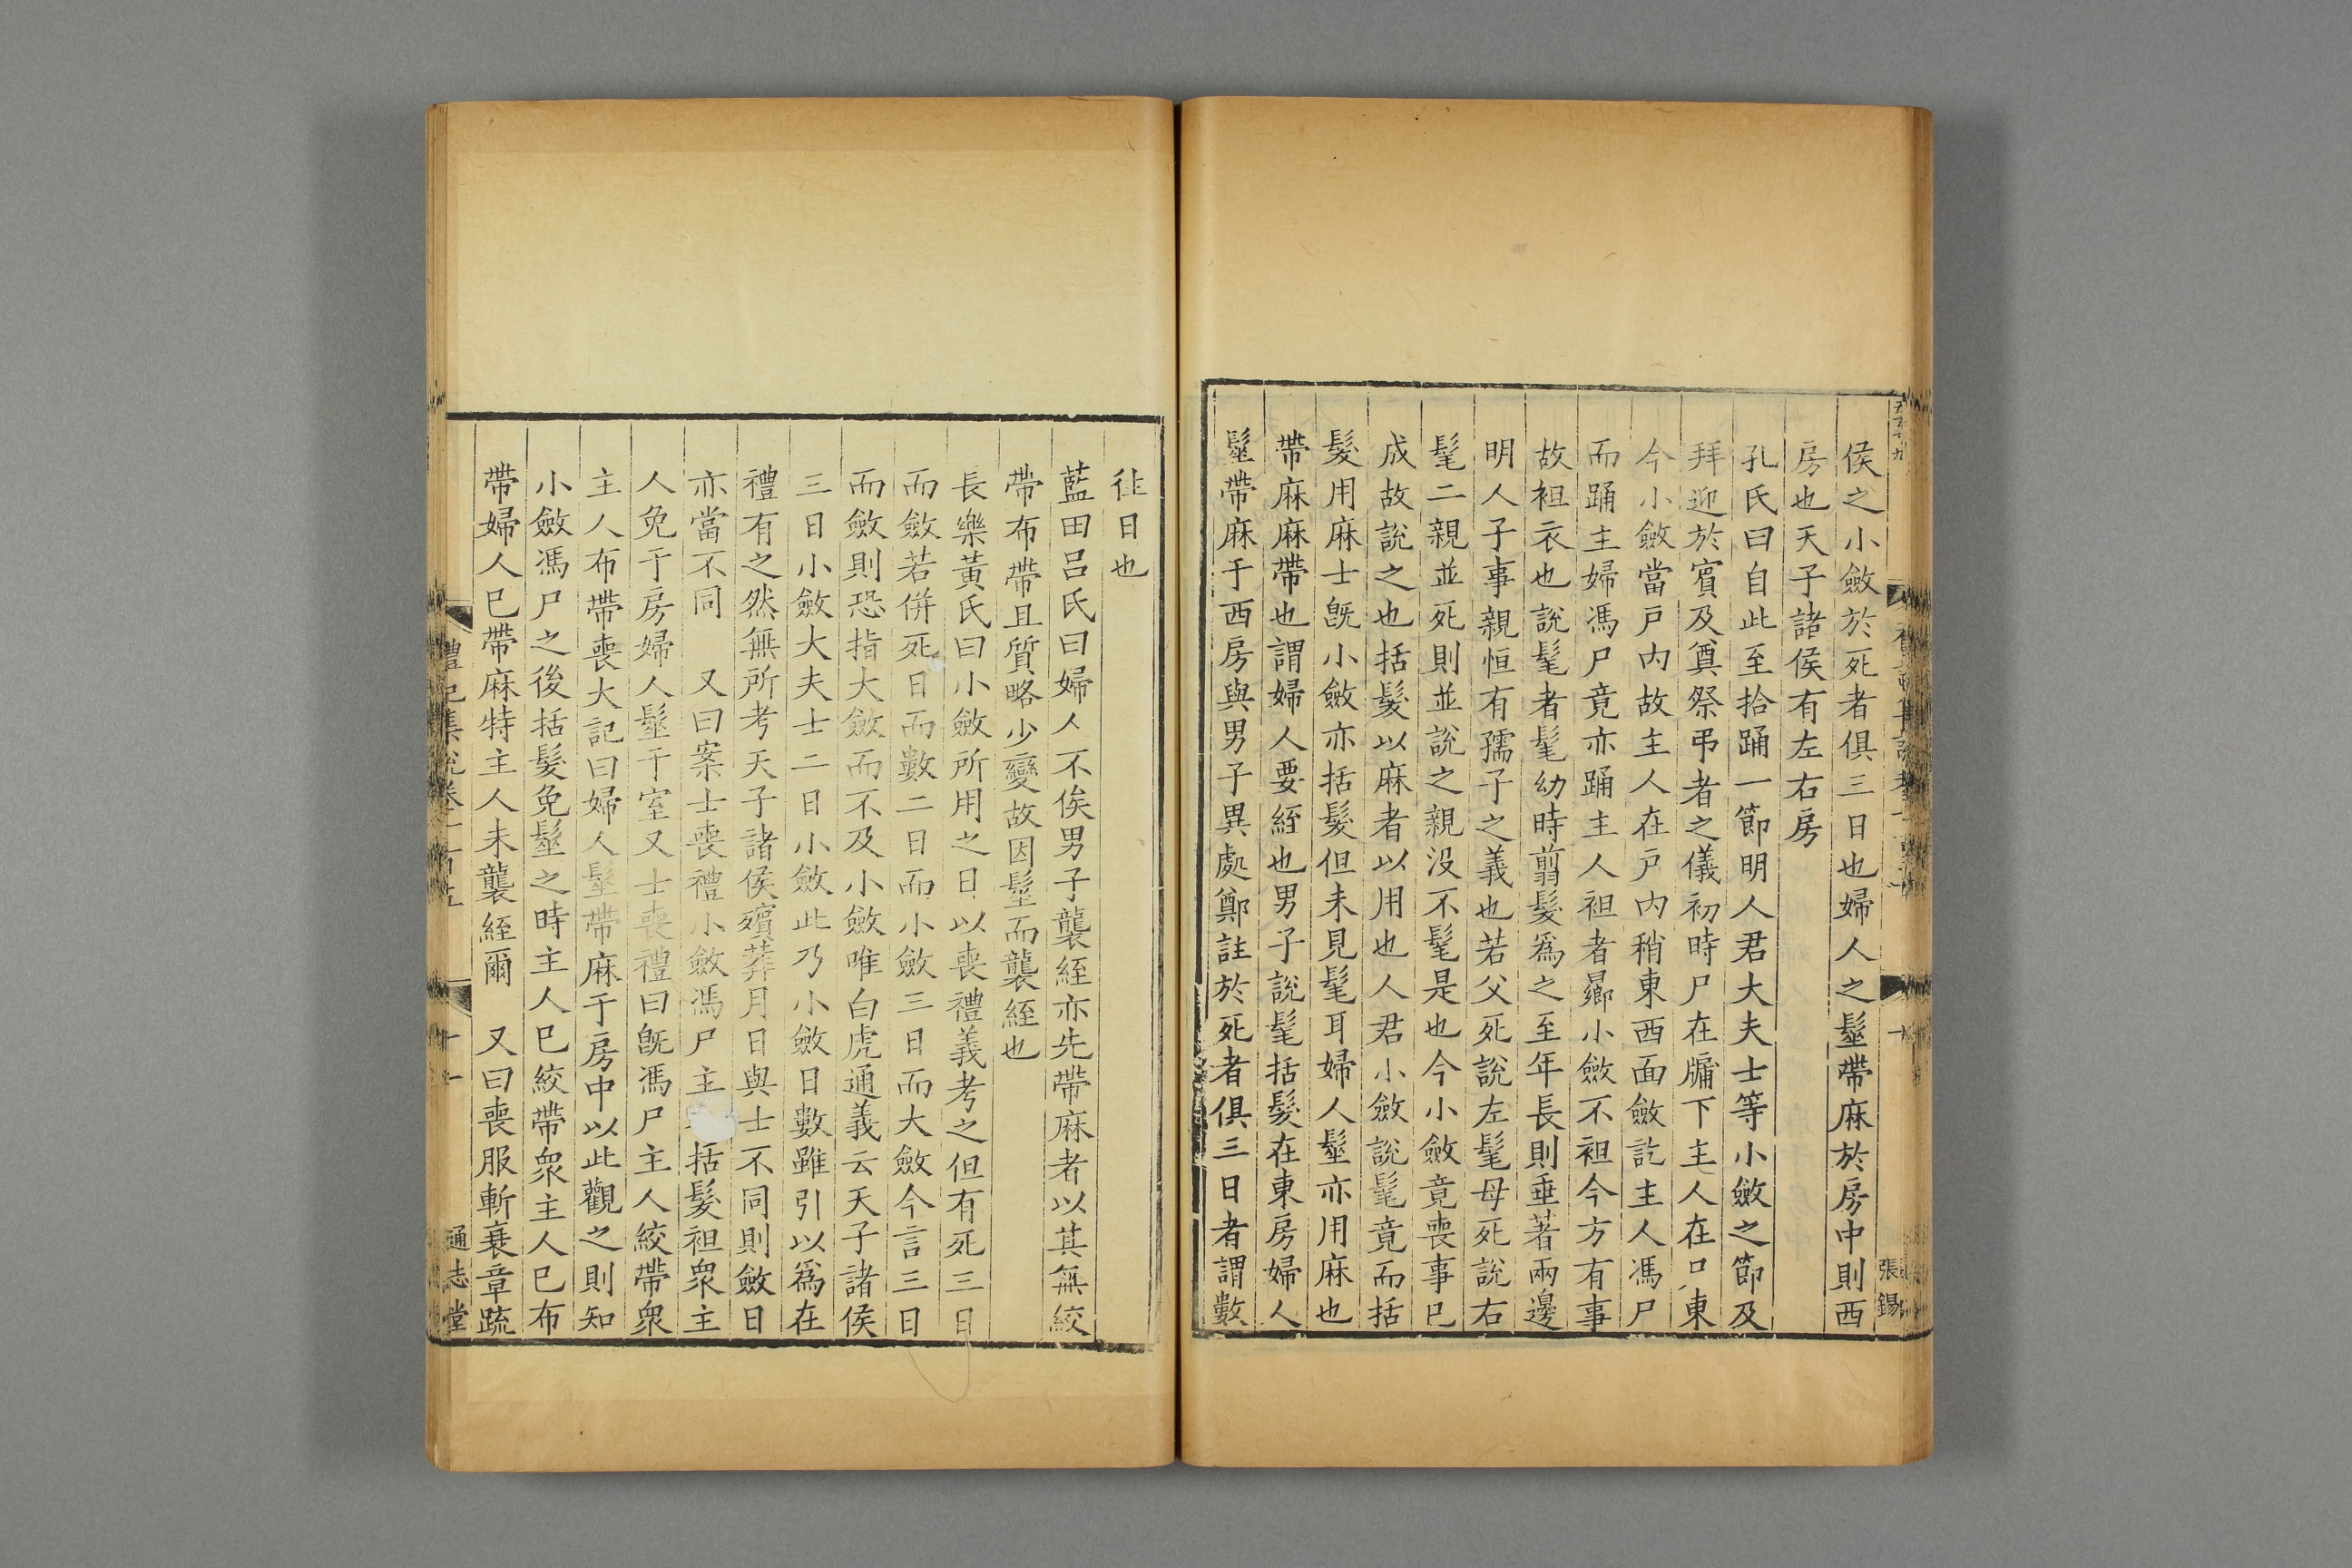 侯之小斂於死者俱三日也婦人之髽帶麻於房中則西
房也天子諸侯有左右房
孔氏曰自此至拾踊一節明人君大夫士等小斂之節及
拜迎於賓及奠祭弔者之儀初時尸在牖下主人在東
今小斂當戸内故主人在戸内稍東西面斂訖主人馮尸
而踊主婦馮尸竟亦踊主人袒者曏小斂不袒今方有事
故袒衣也說髦者髦幼時翦髮爲之至年長則垂著兩邊
明人子事親恒有孺子之義也若父死說左髦母死說右
髦二親並死則並說之親没不髦是也今小斂竟喪事已
成故說之也括髮以麻者以用也人君小斂說髦竟而括
髮用麻士旣小斂亦括髮但未見髦耳婦人髽亦用麻也
帶麻麻帶也謂婦人要絰也男子說髦括髮在東房婦人
髽帶麻于西房與男子異處鄭註於死者俱三日者謂數
往日也
藍田呂氏曰婦人不俟男子襲絰亦先帶麻者以其無絞
帶布帶且質略少變故因髽而襲絰也
長樂黃氏曰小斂所用之日以喪禮義考之但有死三日
而斂若併死日而數二日而小斂三日而大斂今言三日
而斂則恐指大斂而不及小斂唯白虎通義云天子諸侯
三日小斂大夫士二日小斂此乃小斂日數雖引以爲在
禮有之然無所考天子諸侯殯葬月日與士不同則斂日
亦當不同　又曰案士喪禮小斂馮尸主括髮袒衆主
人免于房婦人髽于室又士喪禮曰旣馮尸主人絞帶衆
主人布帶喪大記曰婦人髽帶麻于房中以此觀之則知
小斂馮尸之後括髮免髽之時主人巳絞帶衆主人巳布
帶婦人巳帶麻特主人未襲絰爾　又曰喪服斬衰章疏
禮記集說卷
十一
通志堂
十
張錫